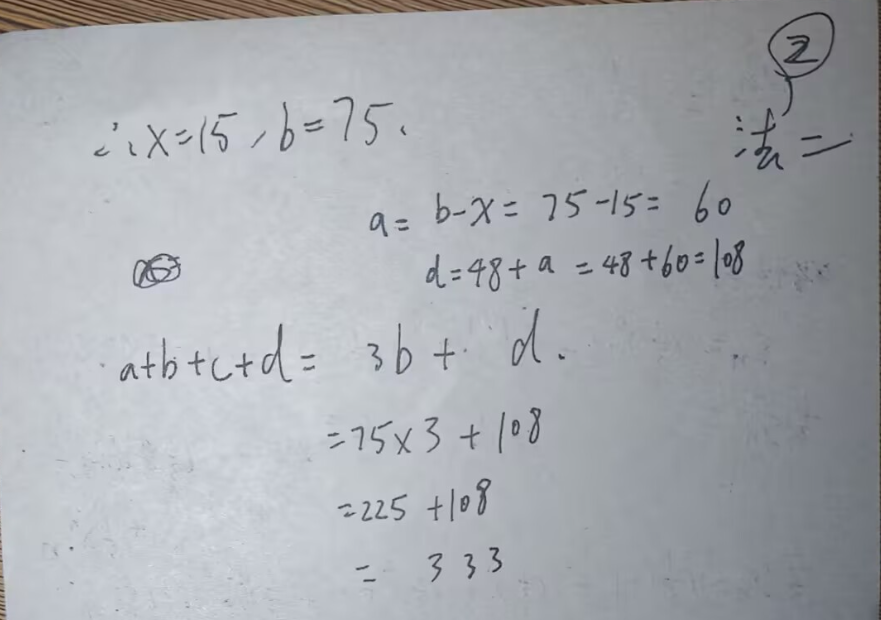 ②
法二
∴ x=15, b=75.
a= b-x= 75-15= 60
d=48+a =48+60=108
a+b+c+d= 3b + d.
=75×3+108
=225+108
= 333